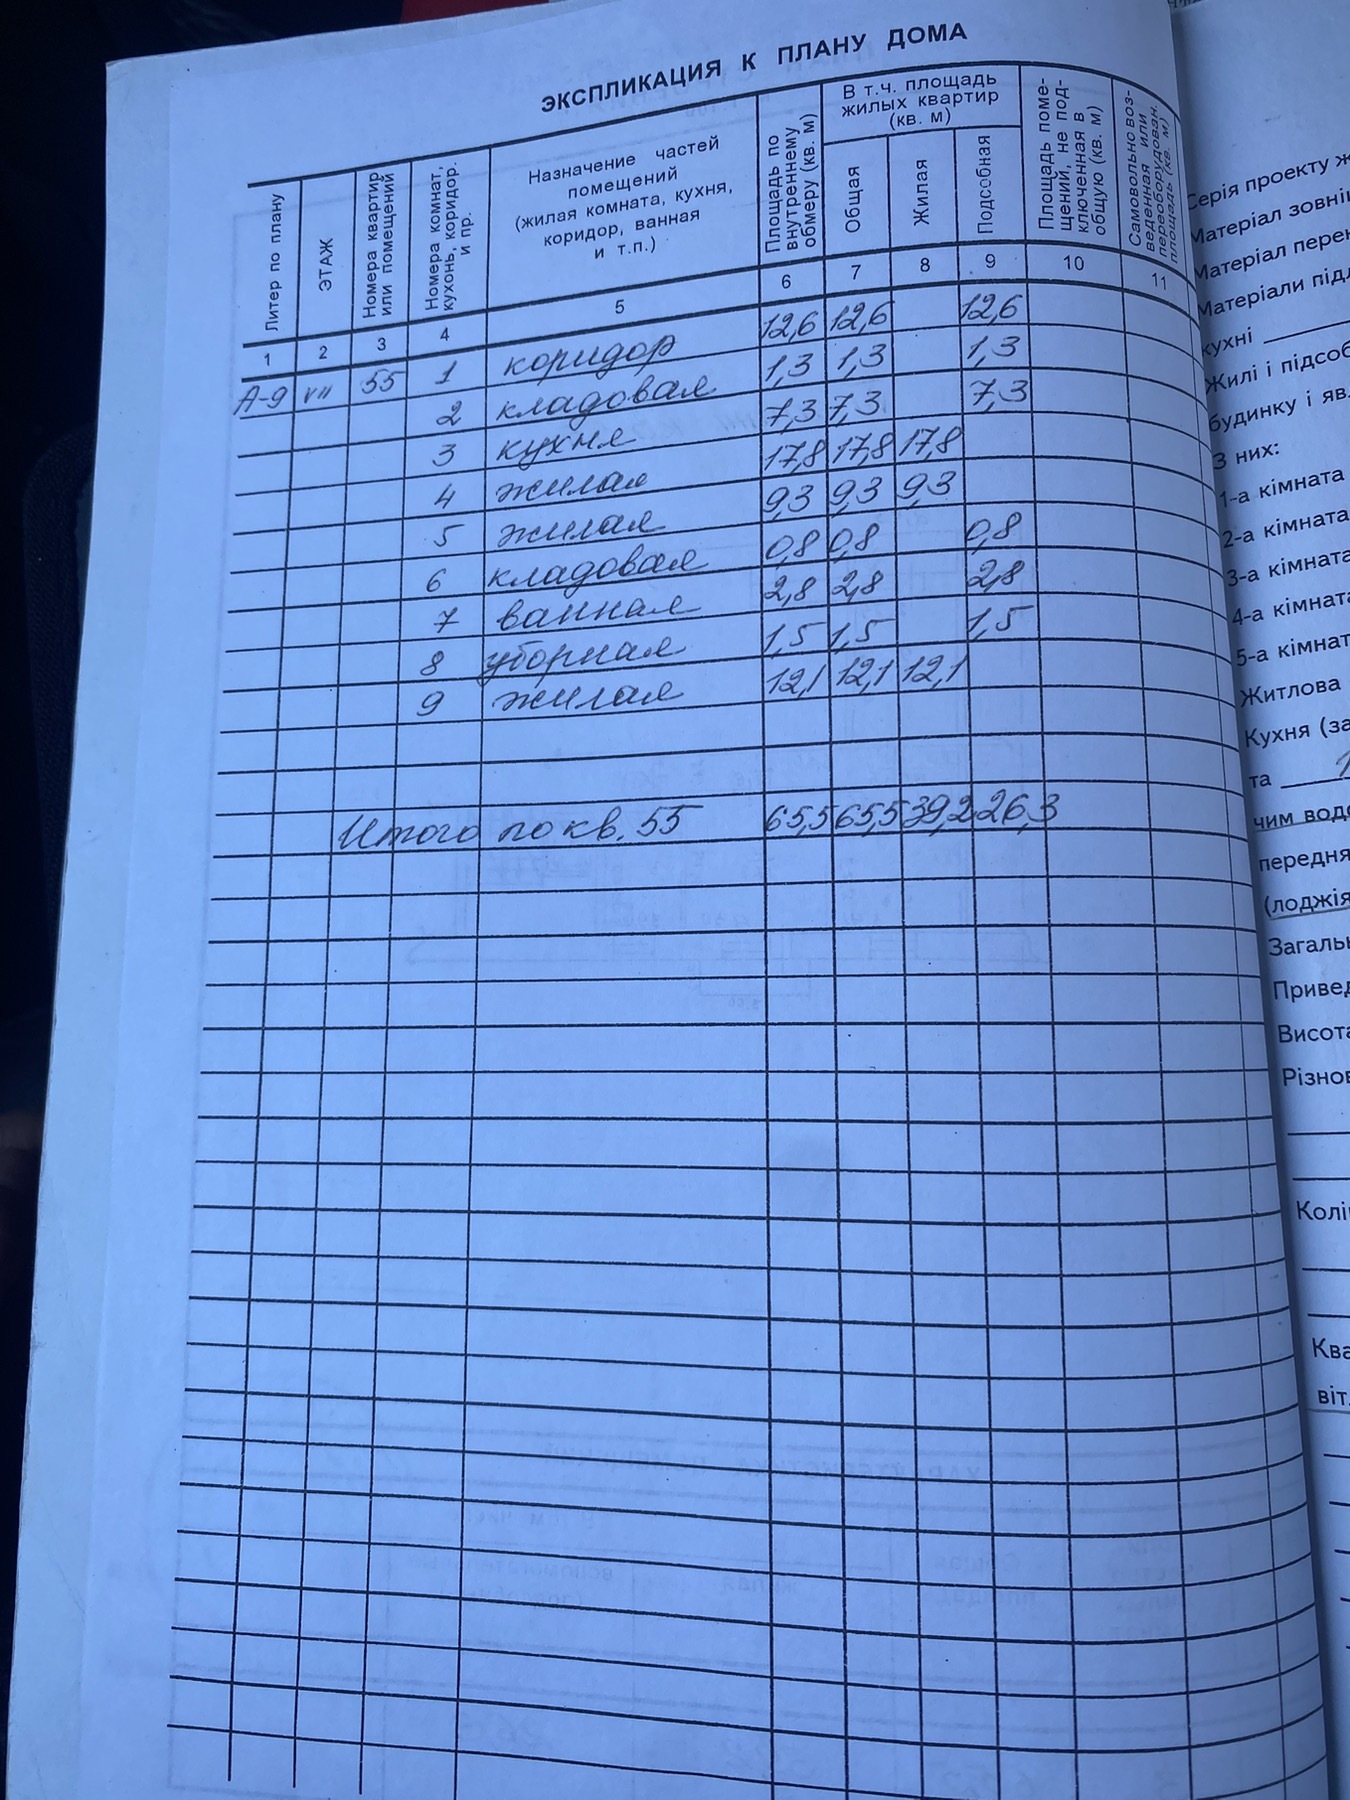 ЭКСПЛИКАЦИЯ К ПЛАНУ ДОМА
Литер по плану
ЭТАЖ
Номера квартир
или помещений
Номера комнат,
кухонь, коридор.
и пр.
Назначение частей
помещений
(жилая комната, кухня,
коридор, ванная
и т.п.)
Площадь по
внутреннему
обмеру (кв. м)
В т.ч. площадь
жилых квартир
(кв. м)
Общая
Жилая
Подсобная
Площадь поме-
щений, не под-
ключенная в
общую (кв. м)
Самовольно воз-
веденная или
переоборудован.
площадь (кв. м)
1 2 3 4 5 6 7 8 9 10 11
А-9 VII 55 1 коридор 12,6 12,6 12,6
2 кладовая 1,3 1,3 1,3
3 кухня 7,3 7,3 7,3
4 жилая 17,8 17,8 17,8
5 жилая 9,3 9,3 9,3
6 кладовая 0,8 0,8 0,8
7 ванная 2,8 2,8 2,8
8 уборная 1,5 1,5 1,5
9 жилая 12,1 12,1 12,1
Итого по кв. 55 65,5 65,5 39,2 26,3
Серія проекту
Матеріал
Матеріал
Матеріали
кухні
Жилі і
будинку і
З них:
1-а кімната
2-а кімната
3-а кімната
4-а кімната
5-а
Житлова
Кухня
та
чим
Висота